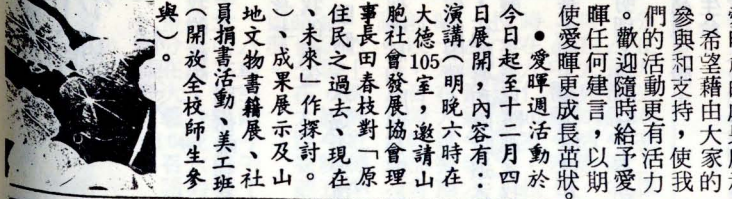 。希望藉由大家的
參與和支持，使我
們的活動更有活力
。歡迎隨時給予愛
暉任何建言，以期
使愛暉更成長茁狀。
●愛暉週活動於
今日起至十二月四
日展開，內容有：
演講（明晚六時在
大德105室，邀請山
胞社會發展協會理
事長田春枝對「原
住民之過去、現在
、未來」作探討。
）、成果展示及山
地文物書籍展、社
員捐書活動、美工班
（開放全校師生參
與）。